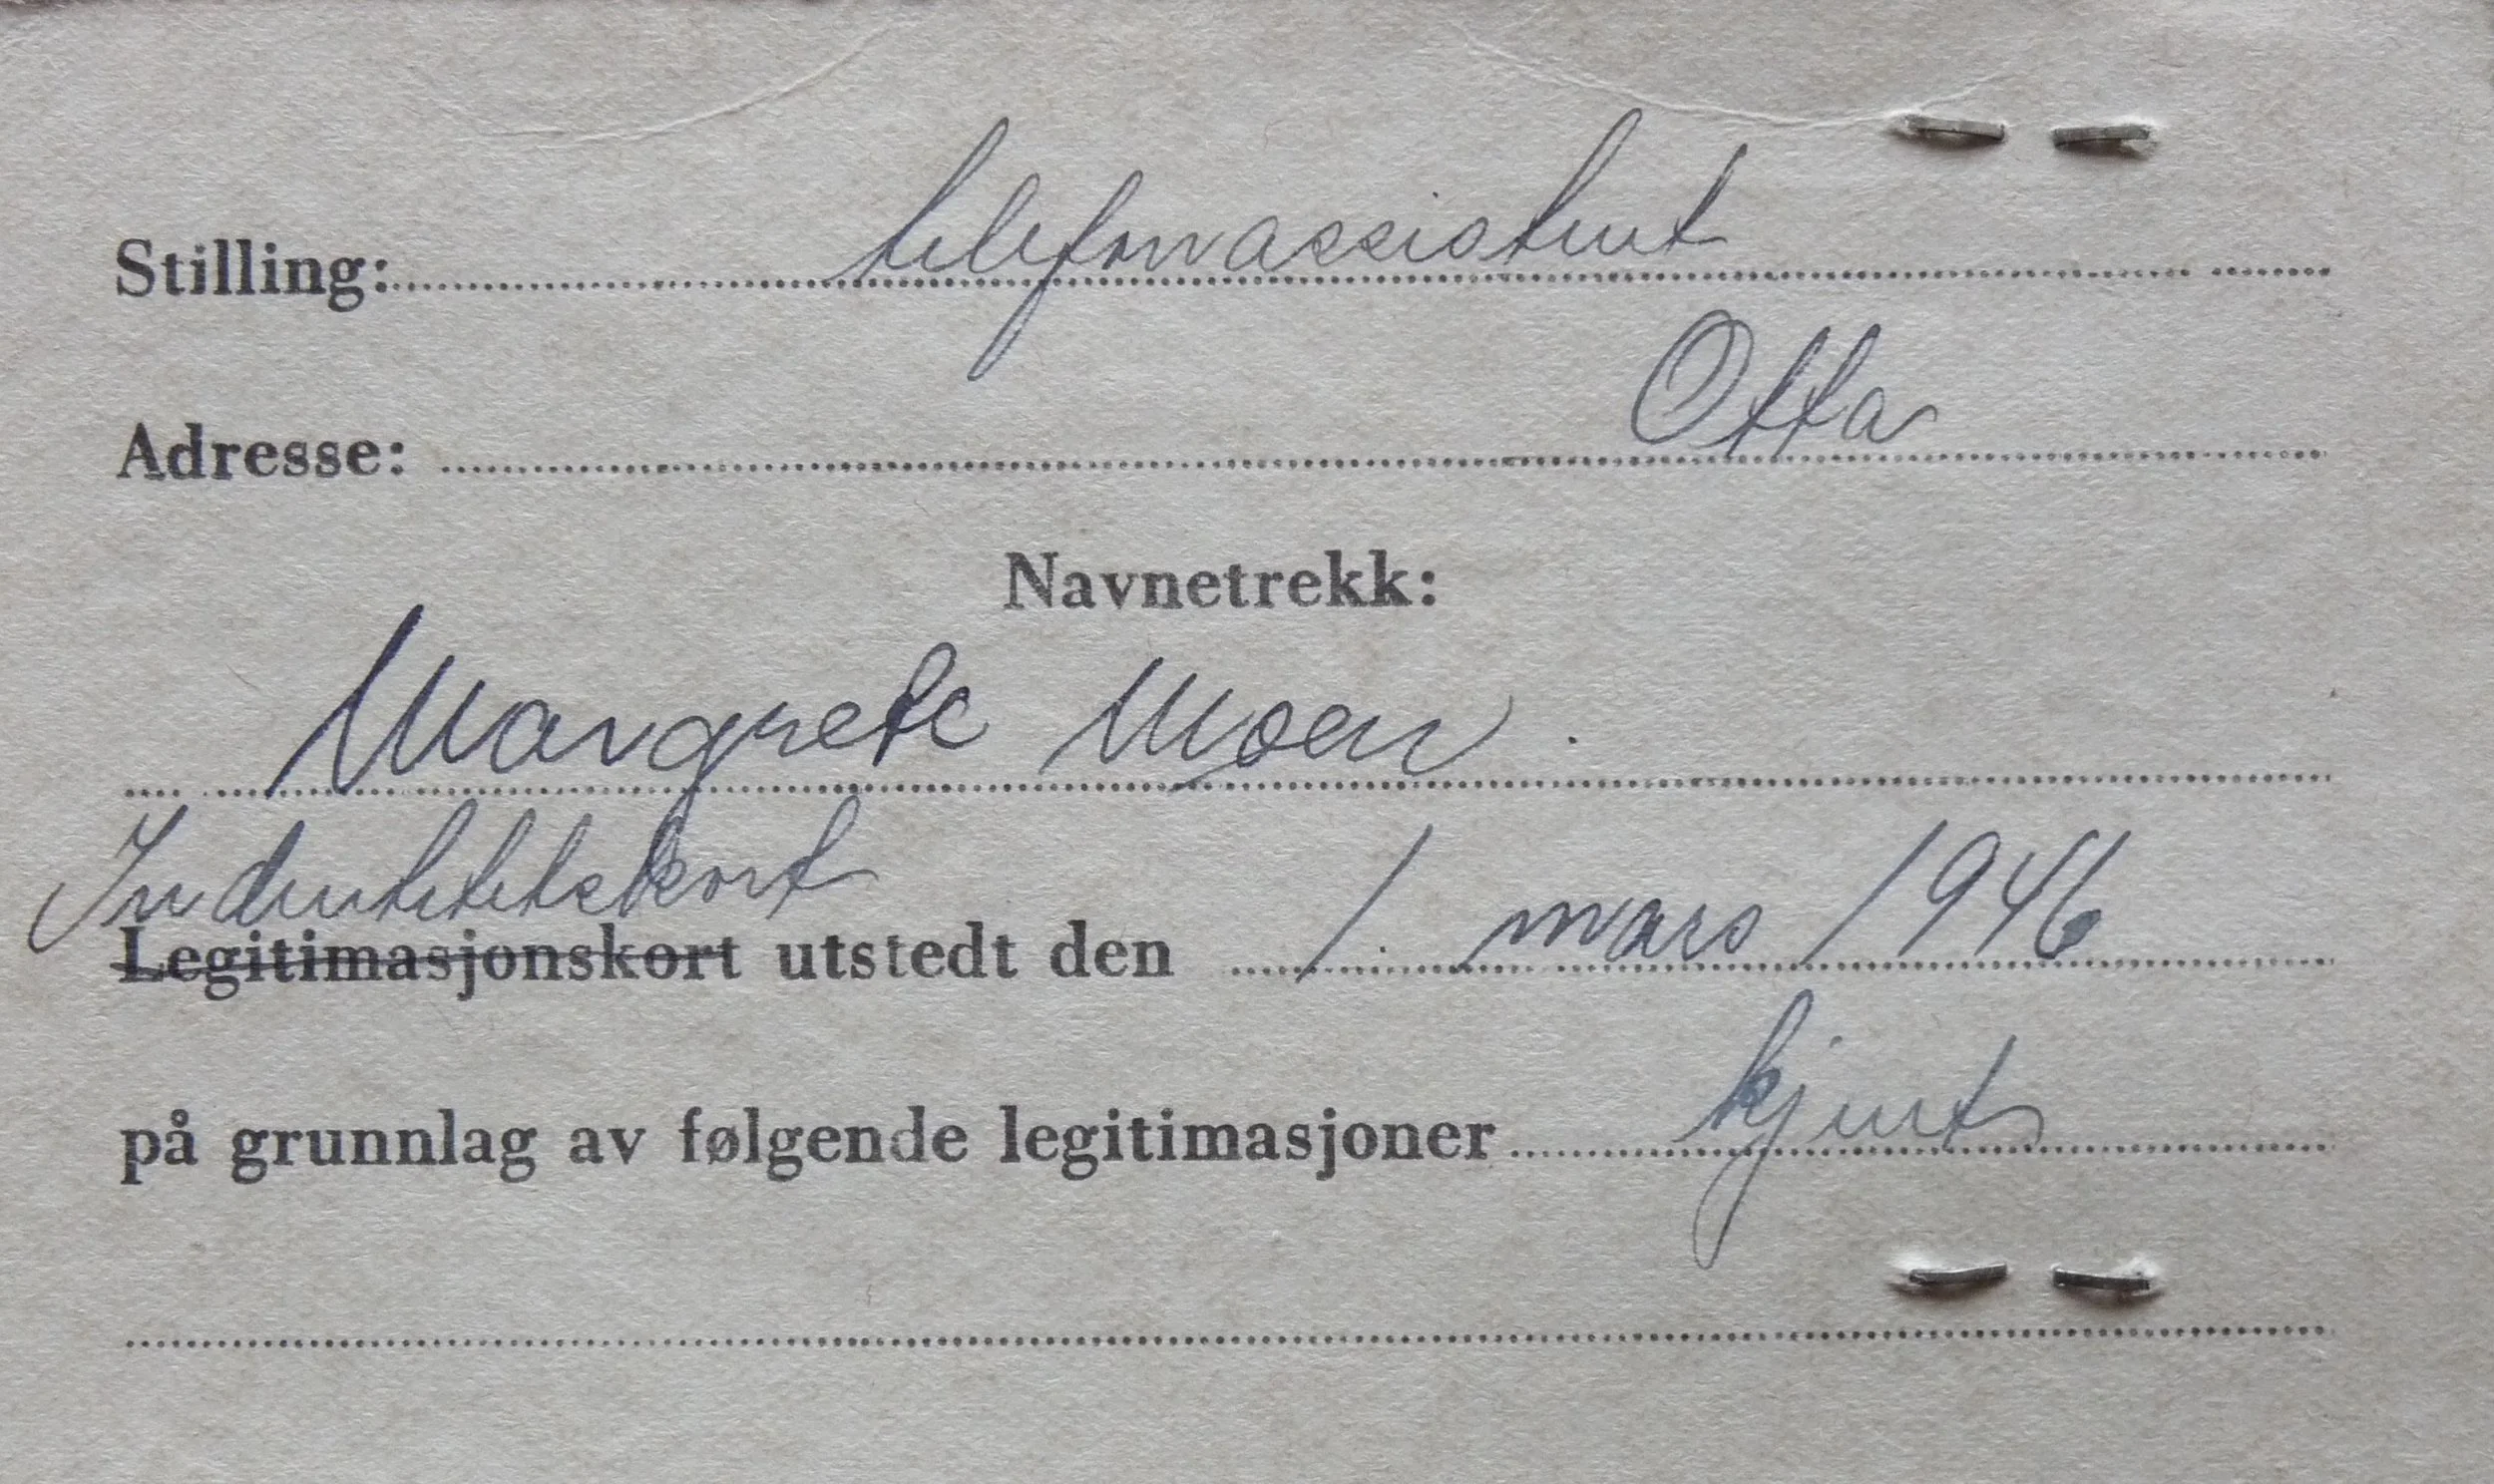 Stilling: telefonassistent
Adresse: Otta
Navnetrekk:
Margrete Moen.
Indentitetskort
Legitimasjonskort utstedt den 1. mars 1946
på grunnlag av følgende legitimasjoner kjent